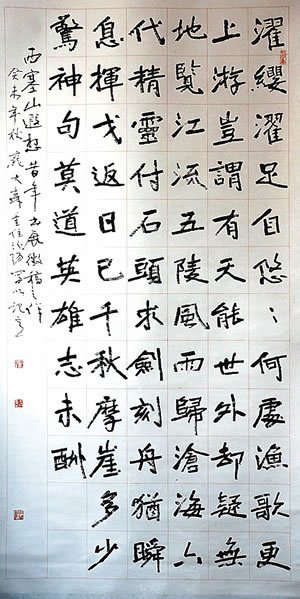 濯纓濯足自悠々何處漁歌更
上游豈謂有天能世外卻疑無
地覽江流五陵風雨歸滄海六
代精靈付石頭求劍刻舟猶瞬
息揮戈返日已千秋摩崖多少
驚神句莫道英雄志未酬
西塞山遐想昔年書展徵稿之作
癸未年秋